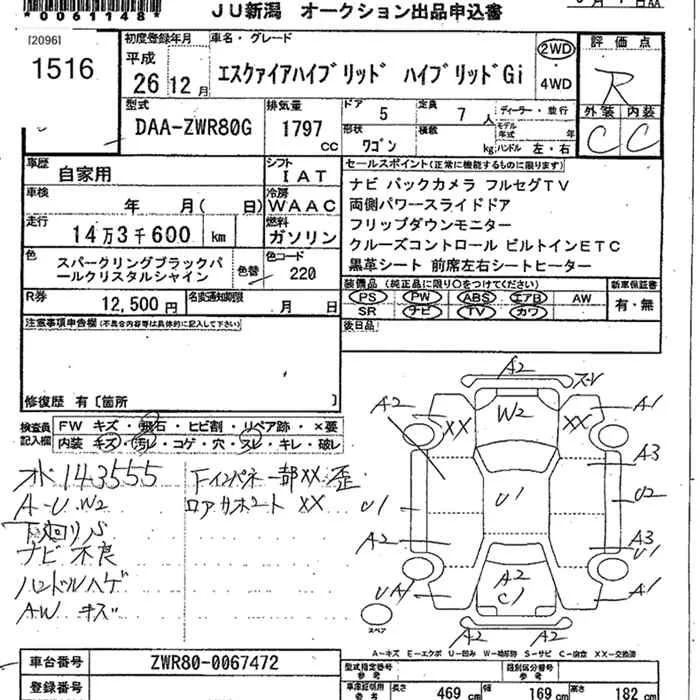 *0061148*
JU新潟 オークション出品申込書
[2096]
1516
初度登録年月
平成
26 12月
車名・グレード
エスクァイアハイブリッド ハイブリッドGi
2WD
4WD
評価点
R
外装 内装
C C
型式
DAA-ZWR80G
排気量
1797
cc
ドア
5
定員
7 人
形状
ワゴン
積載
kg
ディーラー・並行
モデル年式 年
ハンドル 左・右
車歴
自家用
シフト
IAT
車検
年 月( 日)
冷房
WAAC
走行
14万3千600 km
燃料
ガソリン
色
スパークリングブラックパールクリスタルシャイン
色替
色コード
220
R券
12,500円
名変通知期限
月 日
セールスポイント(正常に機能するものに限ります)
ナビ バックカメラ フルセグTV
両側パワースライドドア
フリップダウンモニター
クルーズコントロール ビルトインETC
黒革シート 前席左右シートヒーター
装備品 (純正品に限り○をつけてください)
PS PW ABS エアB AW
SR ナビ TV カワ
新車保証書
有・無
後日品
注意事項申告欄(不具合内容等は具体的に記入して下さい)
修復歴 有〔箇所 〕
検査員記入欄
FW キズ・飛石・ヒビ割・リペア跡・×要
内装 キズ・汚レ・コゲ・穴・スレ・キレ・破レ
メーター 143555
A-U W2
下廻りS
ナビ 不良
ハンドルハゲ
AW キズ
Fインパネ一部XX 歪
ロアサポート XX
A2
スレ
A2
XX
W2
XX
A1
A3
U1
U1
U2
A2
A3
U1
UA1
A2
C1
A1
A2
A2
スペア
A-キズ E-エクボ U-凹み W-補修跡 S-サビ C-腐食 XX-交換済
車台番号
ZWR80-0067472
登録番号
型式指定番号
参考
類別区分番号
参考
車庫証明用
参考
長さ 469 cm
幅 169 cm
高さ 182 cm